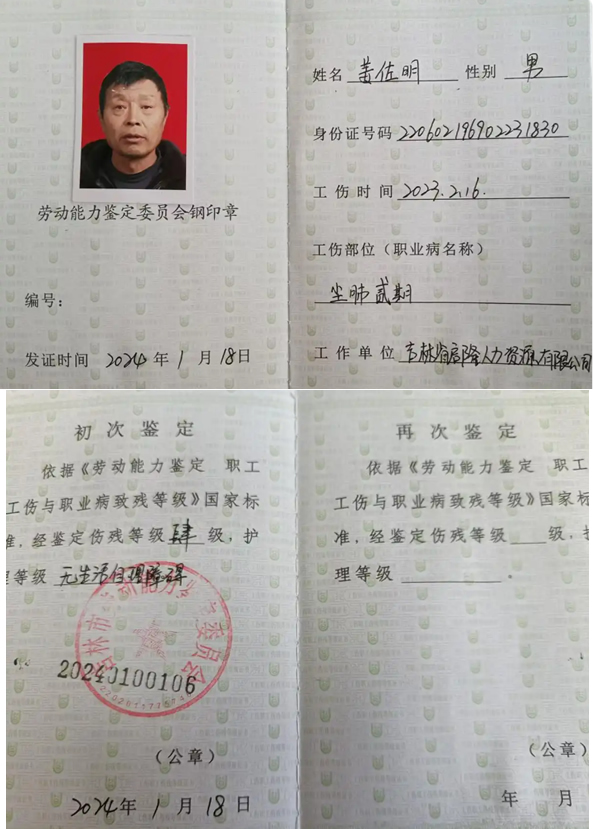 劳动能力鉴定委员会钢印章
编号：
发证时间 2024 年 1 月 18 日
姓名 姜佐明 性别 男
身份证号码 220602196902231830
工伤时间 2023.2.16.
工伤部位（职业病名称）
尘肺贰期
工作单位 吉林省启隆人力资源有限公司
初次鉴定
依据《劳动能力鉴定 职工
工伤与职业病致残等级》国家标
准，经鉴定伤残等级 肆 级，护
理等级 无生活自理障碍
20240100106
（公章）
2024 年 1 月 18 日
再次鉴定
依据《劳动能力鉴定 职工
工伤与职业病致残等级》国家标
准，经鉴定伤残等级 级，护
理等级 。
（公章）
年 月